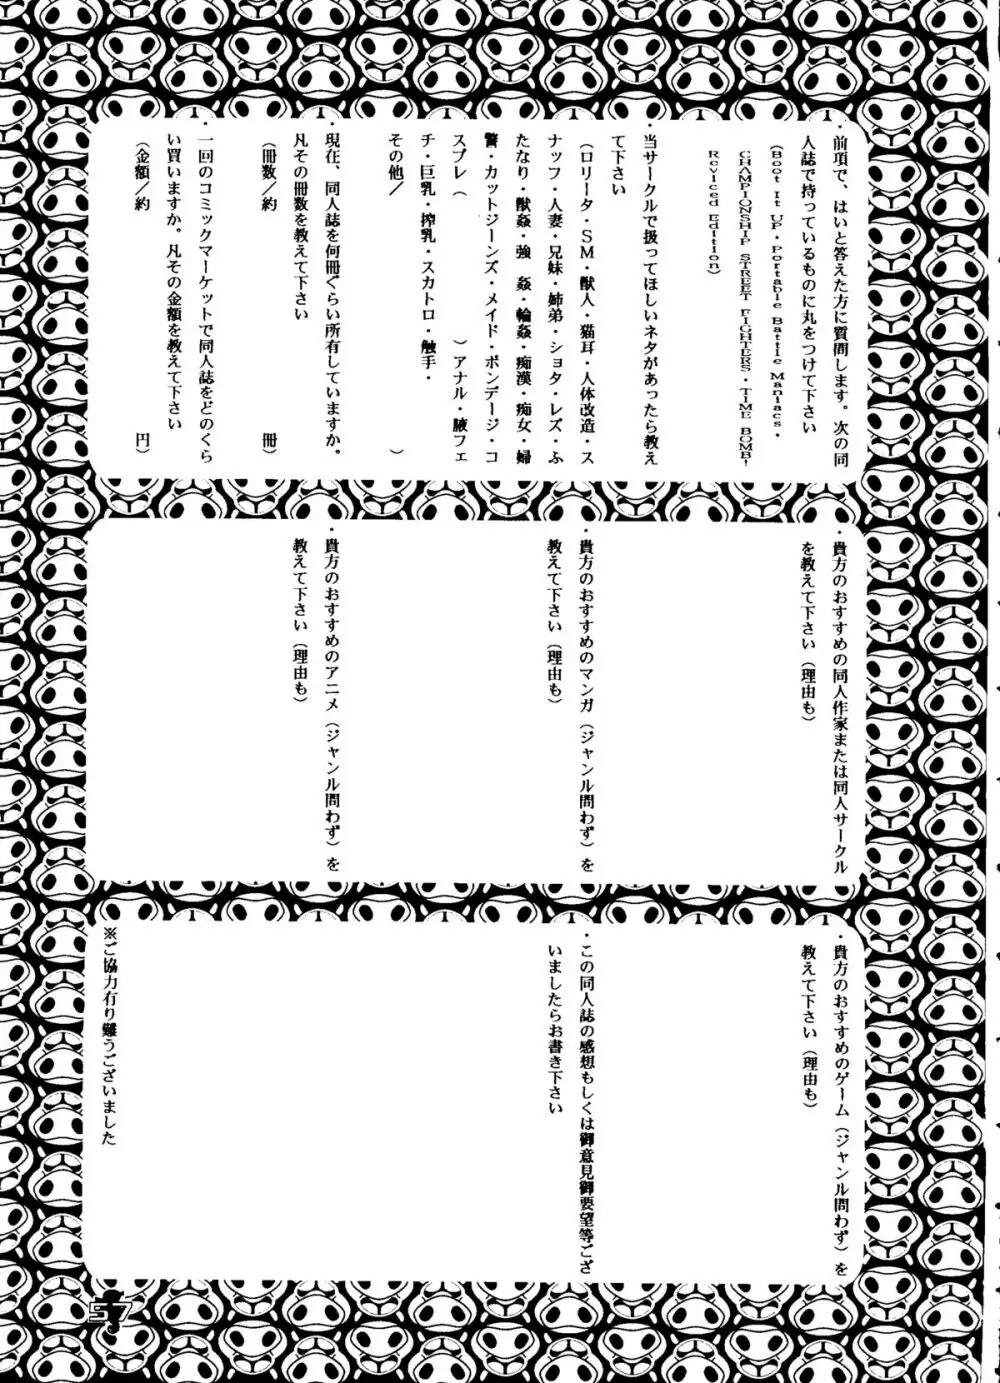 ・前項で、はいと答えた方に質問します。次の同
人誌で持っているものに丸をつけて下さい
(Boot It UP・Portable Battle Maniacs・
CHAMPIONSHIP STREET FIGHTERS・TIME BOMB!
Reviced Edition)
・当サークルで扱ってほしいネタがあったら教え
て下さい
(ロリータ・SM・獣人・猫耳・人体改造・ス
ナッフ・人妻・兄妹・姉弟・ショタ・レズ・ふ
たなり・獣姦・強 姦・輪姦・痴漢・痴女・婦
警・カットジーンズ・メイド・ボンデージ・コ
スプレ( )アナル・腋フェ
チ・巨乳・搾乳・スカトロ・触手・
その他/ )
・現在、同人誌を何冊ぐらい所有していますか。
凡その冊数を教えて下さい
(冊数/約 冊)
・一回のコミックマーケットで同人誌をどのくら
い買いますか。凡その金額を教えて下さい
(金額/約 円)
・貴方のおすすめの同人作家または同人サークル
を教えて下さい(理由も)
・貴方のおすすめのマンガ(ジャンル問わず)を
教えて下さい(理由も)
・貴方のおすすめのアニメ(ジャンル問わず)を
教えて下さい(理由も)
・貴方のおすすめのゲーム(ジャンル問わず)を
教えて下さい(理由も)
・この同人誌の感想もしくは御意見御要望等ござ
いましたらお書き下さい
※ご協力有り難うございました
57